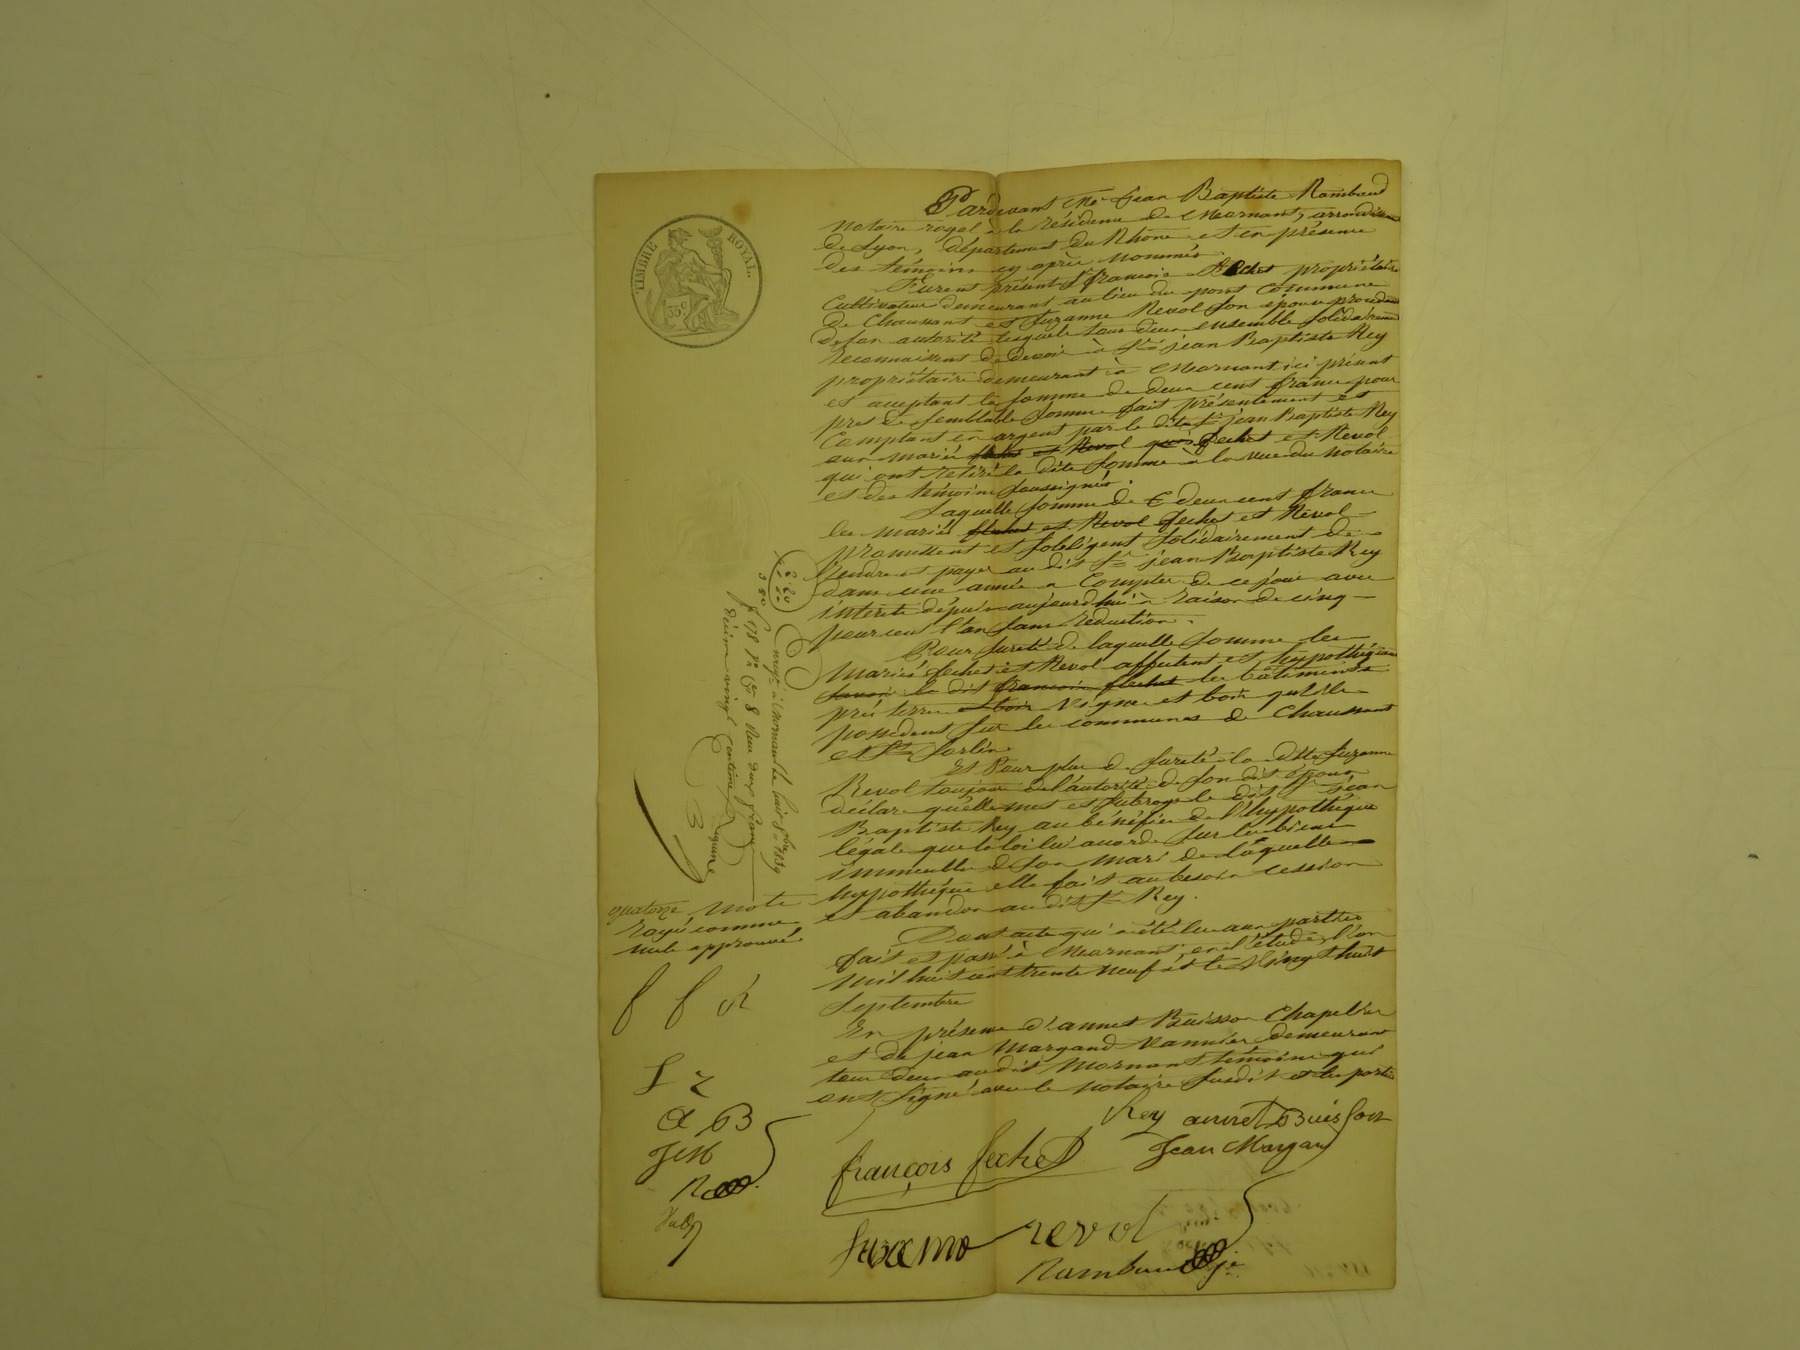 TIMBRE ROYAL.
35 c.
Pardevant Me Jean Baptiste Rambaud
Notaire royal à la résidence de Mornant, arrondissement
de Lyon, département du Rhône et en présence
des témoins cy après nommés.
Furent présent Sr francois Fechet propriétaire
Cultivateur demeurant au lieu du pont Commune
de Chaussant et Suzanne Revol son épouse procedant
de son autorité lesquels tous deux ensemble solidairement
Reconnaissent de devoir à Sr jean Baptiste Rey
propriétaire demeurant à Mornant ici présent
et acceptant la somme de deux cent francs pour
pres de semblable somme fait présentement et
Comptant en argent par le dit Sr jean Baptiste Rey
aux mariés flechet et Revol fechet et Revol
qui ont retiré la dite somme à la vue du notaire
et des témoins soussignés.
Laquelle somme de deux cent francs
les mariés flechet et Revol fechet et Revol
promettent et s'obligent solidairement de
rendre et payer au dit Sr jean Baptiste Rey
dans une année a Compter de ce jour avec
interêts depuis aujourd'hui à raison de cinq
pour cent l'an sans réduction.
Pour sureté de laquelle somme les
Mariés fechet et Revol affectent et hypothéquent
savoir le dit francois flechet les bâtiments
prés terre et bois vigne et bois qu'ils
possedent sur les communes de Chaussant
et St Sorlin.
Et Pour plus de sureté la dite Suzanne
Revol toujours de l'autorité de son dit époux
déclare qu'elle met et subroge le dit Sr jean
Baptiste Rey au bénéfice de l'hypothéque
légale que la loi lui accorde sur les biens
immeubles de son mari de laquelle
hypothéque elle fait au besoin cession
et abandon au dit Sr Rey.
Dont acte qui a été lu aux parties
fait et passé à Mornant, en l'étude, l'an
mil huit cent trente neuf et le vingt huit
Septembre
En présence d'annet Buisson Chapelier
et de jean Margand Vannier demeurant
tous deux au dit Mornant témoins qui
ont signé avec le notaire susdit et les parties
Rey annet Buisson
Jean Margand
françois fechet
Suzanne revol
Rambaud
Enregé à Mornant le huit 8bre 1839
fo 178 Vo Ce 8 Reçu deux francs
décime vingt centimes
2 20
quatorze mots
rayés comme
nuls approuvés
f f
S r
a B
J M
R